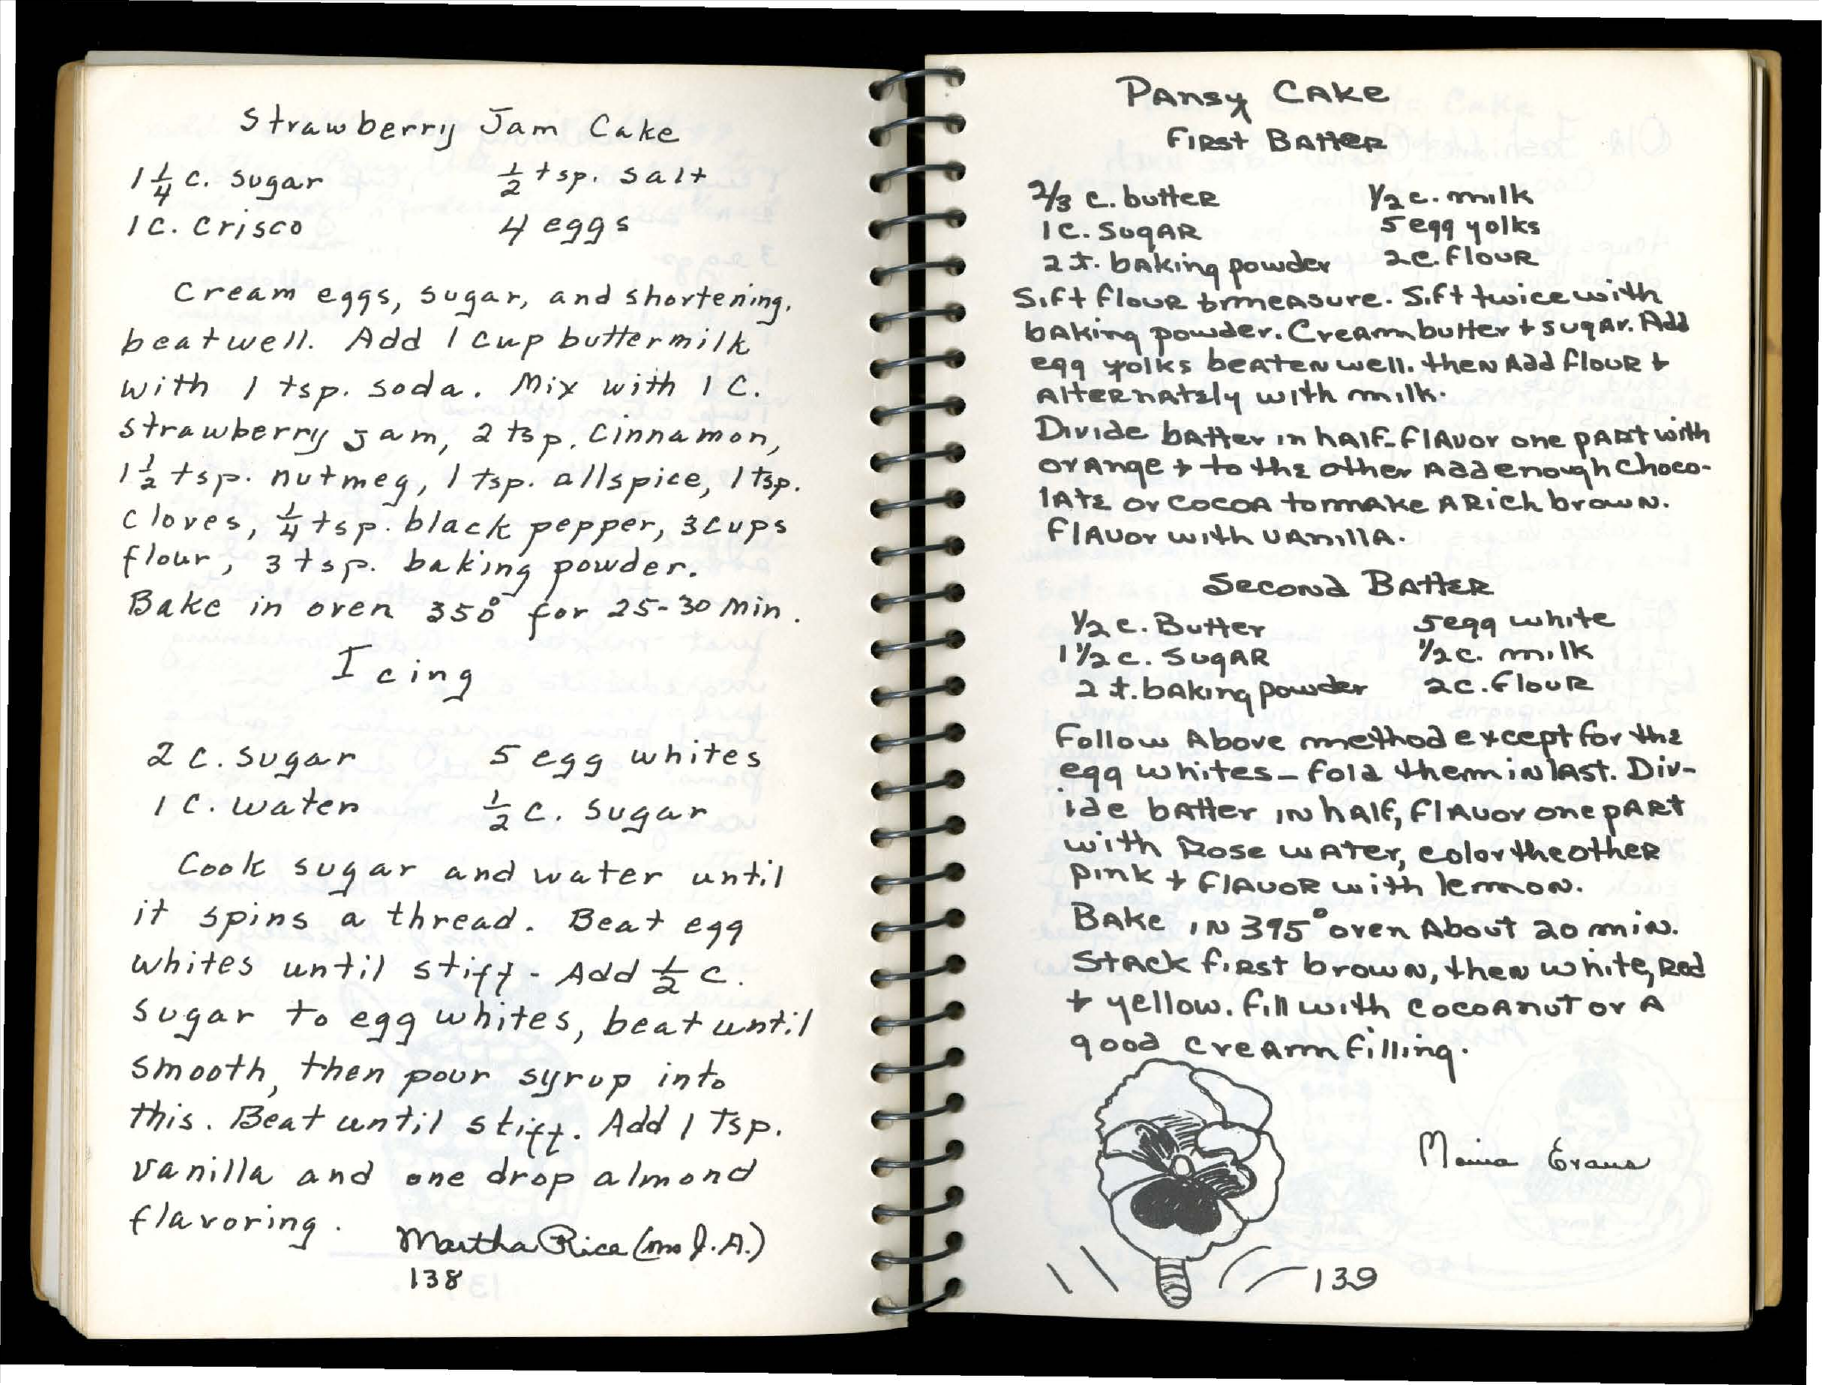 Strawberry Jam Cake
1 1/4 c. sugar 1/2 tsp. salt
1 c. Crisco 4 eggs
Cream eggs, sugar, and shortening,
beat well. Add 1 cup buttermilk
with 1 tsp. soda. Mix with 1 C.
strawberry jam, 2 tsp. cinnamon,
1 1/2 tsp. nutmeg, 1 tsp. allspice, 1 tsp.
cloves, 1/4 tsp. black pepper, 3 cups
flour, 3 tsp. baking powder.
Bake in oven 350° for 25-30 min.
Icing
2 c. sugar 5 egg whites
1 c. water 1/2 c. sugar
Cook sugar and water until
it spins a thread. Beat egg
whites until stiff - Add 1/2 c.
sugar to egg whites, beat until
smooth, then pour syrup into
this. Beat until stiff. Add 1 Tsp.
vanilla and one drop almond
flavoring.
Martha Rice (Mrs J. A.)
138
Pansy Cake
First Batter
2/3 c. butter 1/2 c. milk
1 c. sugar 5 egg yolks
2 t. baking powder 2 c. flour
Sift flour & measure. Sift twice with
baking powder. Cream butter + sugar. Add
egg yolks beaten well. then Add flour +
Alternately with milk.
Divide batter in half-flavor one part with
orange + to the other Add enough Choco-
late or cocoa to make A Rich brown.
Flavor with vanilla.
Second Batter
1/2 c. Butter 5 egg white
1 1/2 c. sugar 1/2 c. milk
2 t. baking powder 2 c. flour
Follow Above method except for the
egg whites - fold them in last. Div-
ide batter in half, flavor one part
with Rose water, color the other
pink + flavor with lemon.
Bake in 395° oven About 20 min.
Stack first brown, then white, Red
+ yellow. Fill with cocoanut or A
good cream filling.
Evans
139